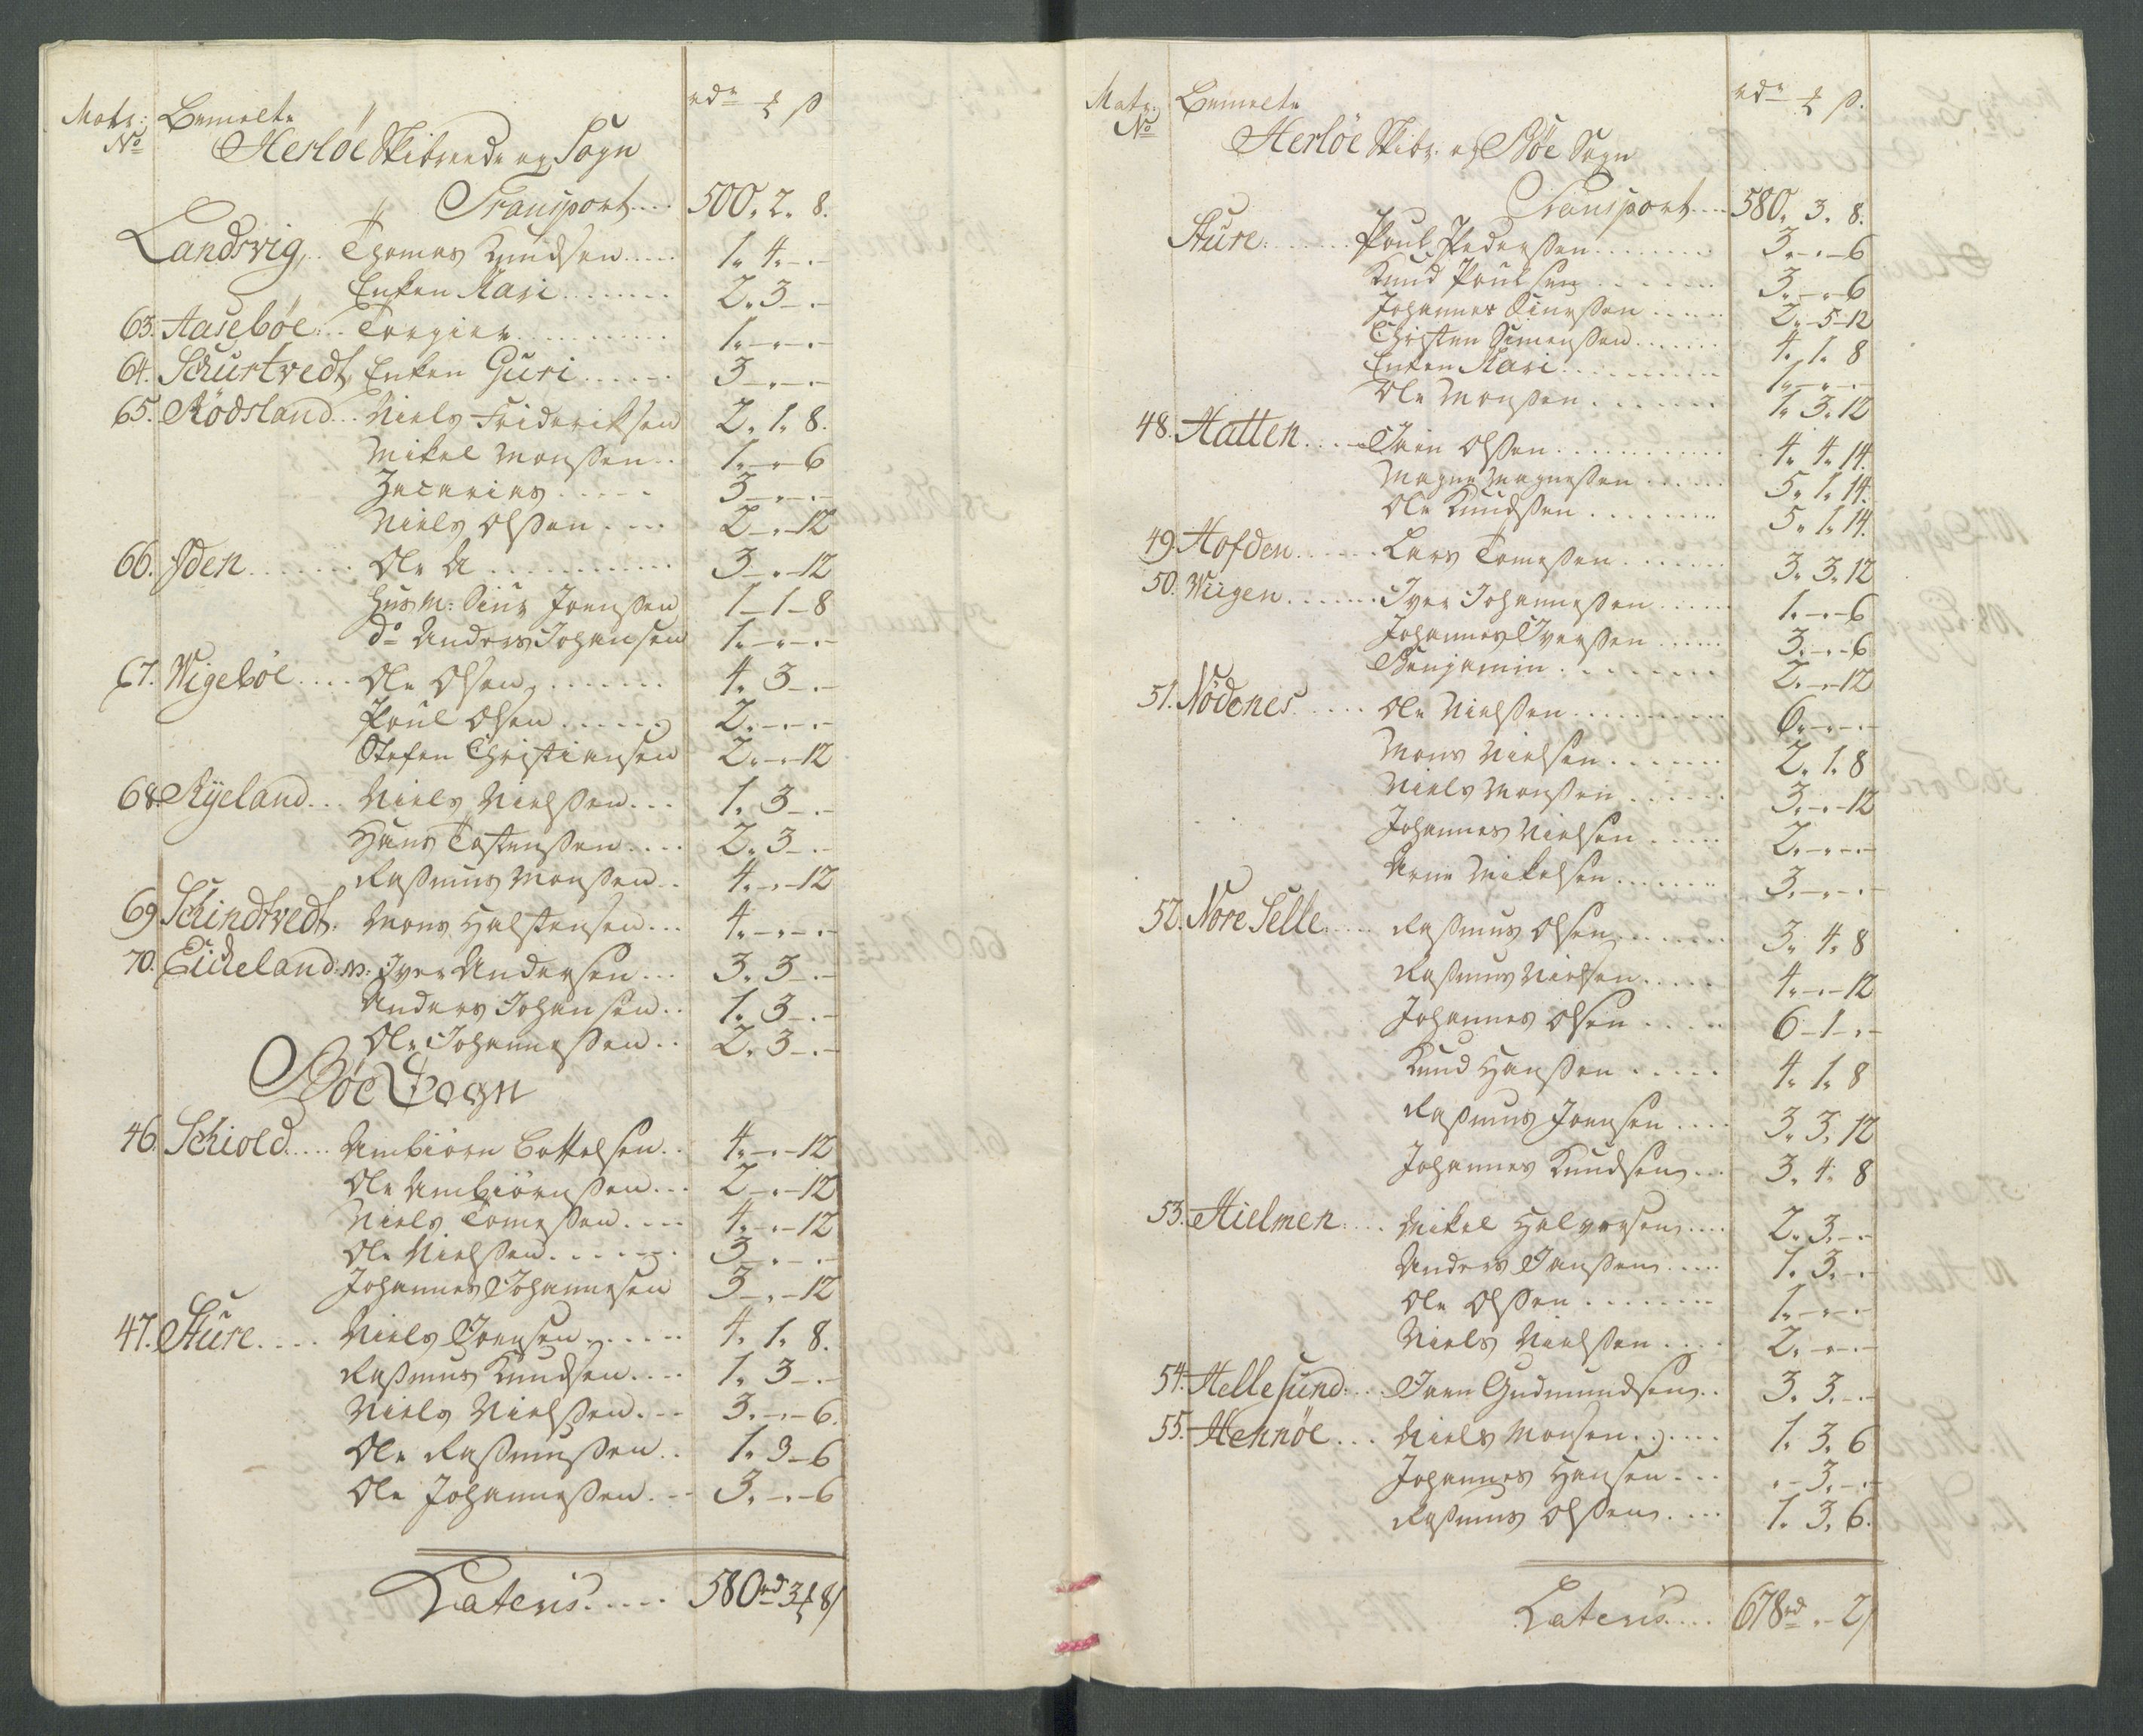 Matr: Bemelte rdr ₰ ß
No Herlöe Skibreede og Sogn
Transport.... 500. 2. 8.
Landsvig,.. Thomas Knudsen..... 1. 4. -.-
Enken Kari........ 2. 3 -.-
63. Aaseböe... Torgier.......... 1. -.-.-
64. Schurtvedt, Enken Guri...... 3 -.-.-
65. Rödsland... Niels Frideriksen 2. 1. 8.
Mikel Monssen.. 1. -.- 6
Zacarias..... 3 -.-.-
Niels Olssen.... 2 -.- 12
66. Iden....... Ole A........... 3 -.- 12
Husm: Siur Joenssen 1 - 1 - 8
do Anders Johansen 1. -.-.-
67. Wigeböe.... Ole Olsen........ 4. 3 -.-
Poul Olsen...... 2. -.-.-
Stefen Christiansen 2. -.- 12
68. Ryeland... Niels Nielssen... 1. 3 -.-
Hans Tostenssen.... 2. 3 -.-
Rassmus Monssen.. 4. -.- 12
69 Schindtvedt. Mons Halstensen... 4. -.-.-
70. Eicheland: N: Iver Andersen... 3. 3 -.-
Anders Johansen.. 1. 3 -.-
Ole Johannessen.. 2. 3 -.-
Böe Sogn
46. Schiold..... Ambiörn Bottelsen.. 4. -.- 12
Ole Ambiörnssen... 2 -.- 12
Niels Tomessen.... 4. -.- 12
Ole Nielssen....... 3 -.-.-
Johannes Johannesen 3 -.- 12
47. Sture.... Niels Joensen...... 4. 1. 8.
Rassmus Knudsen.... 1. 3 -.-
Niels Nielssen... 3. -.- 6.
Ole Rassmussen.. 1. 3 - 6
Ole Johannessen... 3. -.- 6
Lateris..... 580rd 3₰ 8ß
Matr: Bemelte rdr ₰ ß.
No Herlöe Skibr: og Böe Sogn
Transport... 580. 3. 8.
Sture....... Poul Pederssen........ 3. -.- 6
Knud Poulsen....... 3. -.- 6
Johannes Siurssen..... 2. - 5 - 12
Christen Simenssen....... 4. 1. 8
Enken Kari.......... 1. -.-.-
Ole Monssen....... 1. 3. 12
48. Hatten.... Iven Olssen........... 4. 4. 14.
Magne Magnessen...... 5. 1. 14.
Ole Knudssen........ 5. 1. 14.
49. Hofden...... Lars Tomessen....... 3. 3. 12
50. Wiigen....... Iver Johannessen...... 1. -.- 6
Johannes Iverssen...... 3. -.- 6
Benjamin......... 2. -.- 12
51. Nödenes..... Ole Nielssen.......... 6. -.-.-
Mons Nielsen....... 2. 1. 8
Niels Monssen...... 3. -.- 12
Johannes Nielsen..... 2. -.-.-
Arne Mikelsen....... 3. -.-.-
52. Nore Selle.... Rassmus Olsen....... 3. 4. 8
Rassmus Nielsen..... 4. -.- 12
Johannes Olsen..... 6 - 1 -.-
Knud Hanssen..... 4. 1. 8
Rassmus Joensen.... 3. 3. 12
Johannes Knudsen... 3. 4. 8
53. Hielmen.... Mikel Halvorsen.... 2. 3. -.-
Anders Janssen.... 1. 3. -.-
Ole Olssen........ 1. -.-.-
Niels Nielssen.... 2. -.-.-
54. Hellesund.... Iven Gudmundsen.. 3. 3. -.-
55. Hennöe... Niels Monsen...... 1. 3. 6
Johannes Hansen... . - 3. -.-
Rassmus Olssen.... 1. 3. 6.
Lateris.... 678rd . - 2ß